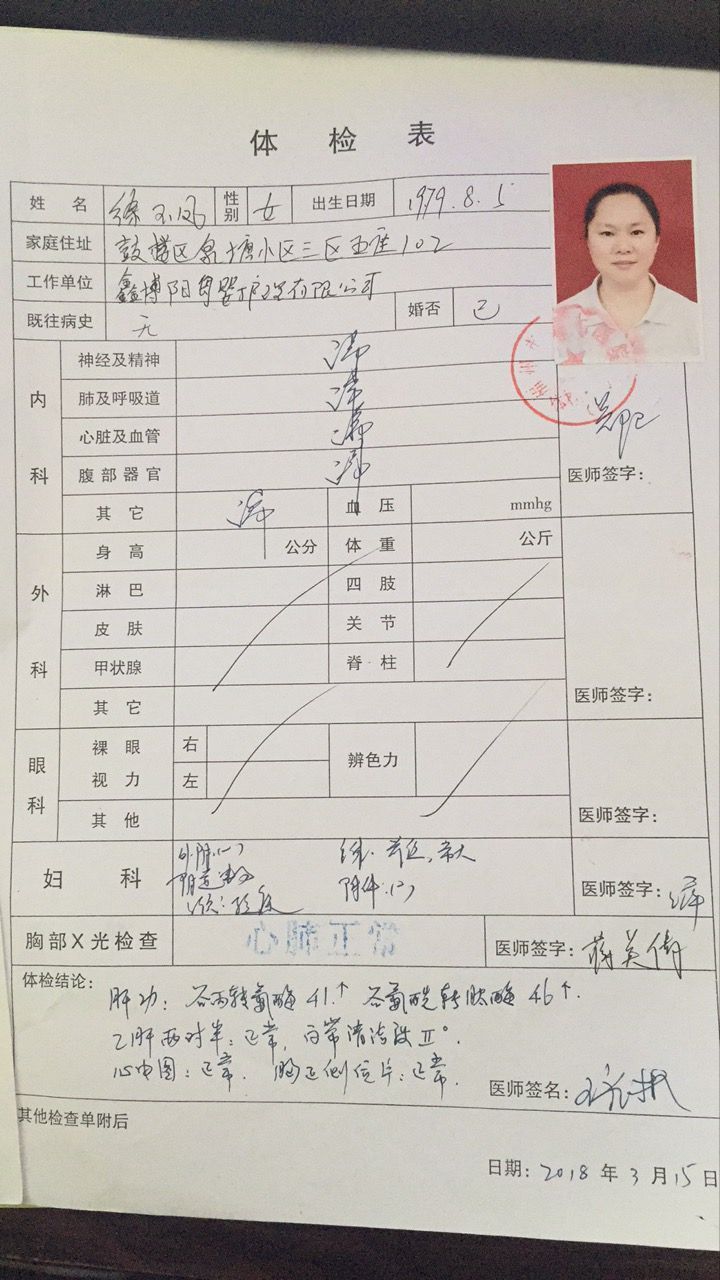 体检表
姓名 练玉凤 性别 女 出生日期 1979.8.5
家庭住址 鼓楼区泉塘小区三区五座102
工作单位 鑫博阳母婴护理有限公司
既往病史 无 婚否 已
内科 神经及精神
肺及呼吸道
心脏及血管
腹部器官 医师签字：
其它 血压 mmhg
外科 身高 公分 体重 公斤
淋巴 四肢
皮肤 关节
甲状腺 脊柱
其它 医师签字：
眼科 裸眼视力 右 辨色力
左
其他 医师签字：
妇科 外阴(-)
附件(-) 医师签字：
胸部X光检查 心肺正常 医师签字：
体检结论：
肝功：谷丙转氨酶41↑ 谷氨酰转肽酶46↑.
乙肝两对半：正常，白带清洁度II°.
心电图：正常. 胸正侧位片：正常.
医师签名：
其他检查单附后
日期：2018年3月15日